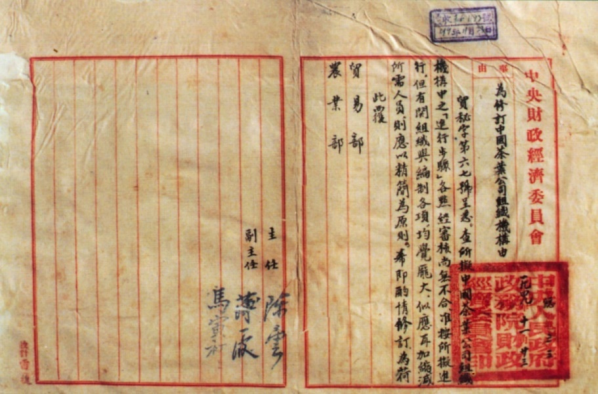 中央財政經濟委員會
事由
為修訂中國茶葉公司組織機構由
貿秘字第六七號呈悉。查所擬中國茶葉公司組織
機構中之「進行步驟」各點,經審核尚無不合,准按所擬進
行,但有関組織與編制各項,均覺龐大,似應再加縮減
所需人員,則應以精简為原則。希即酌情修訂為荷
此覆
貿易部
農業部
主任
副主任
陳雲
薄一波
馬寅初
中央人民政府
政務院財政
經濟委員會印